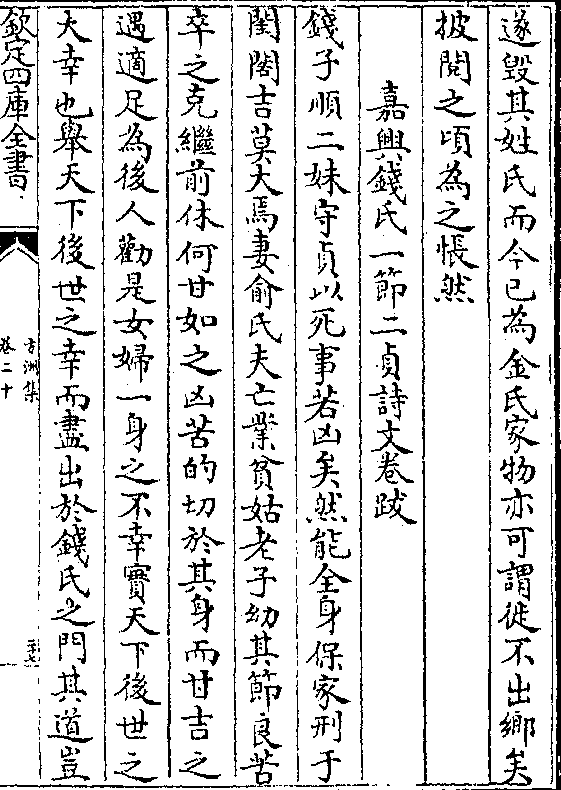 遂毀其姓氏而今已為金氏家物亦可謂徙不出鄉矣
披閱之頃為之悵然
嘉興錢氏一節二貞詩文卷跋
錢子順二妹守貞以死事若凶矣然能全身保家刑于
閨閤吉莫大焉妻俞氏夫亡業貧姑老子幼其節良苦
卒之克繼前休何甘如之凶苦的切於其身而甘吉之
遇適足為後人勸是女婦一身之不幸實天下後世之
大幸也舉天下後世之幸而盡出於錢氏之門其道豈
欽定四庫全書
方洲集
卷二十
二十七